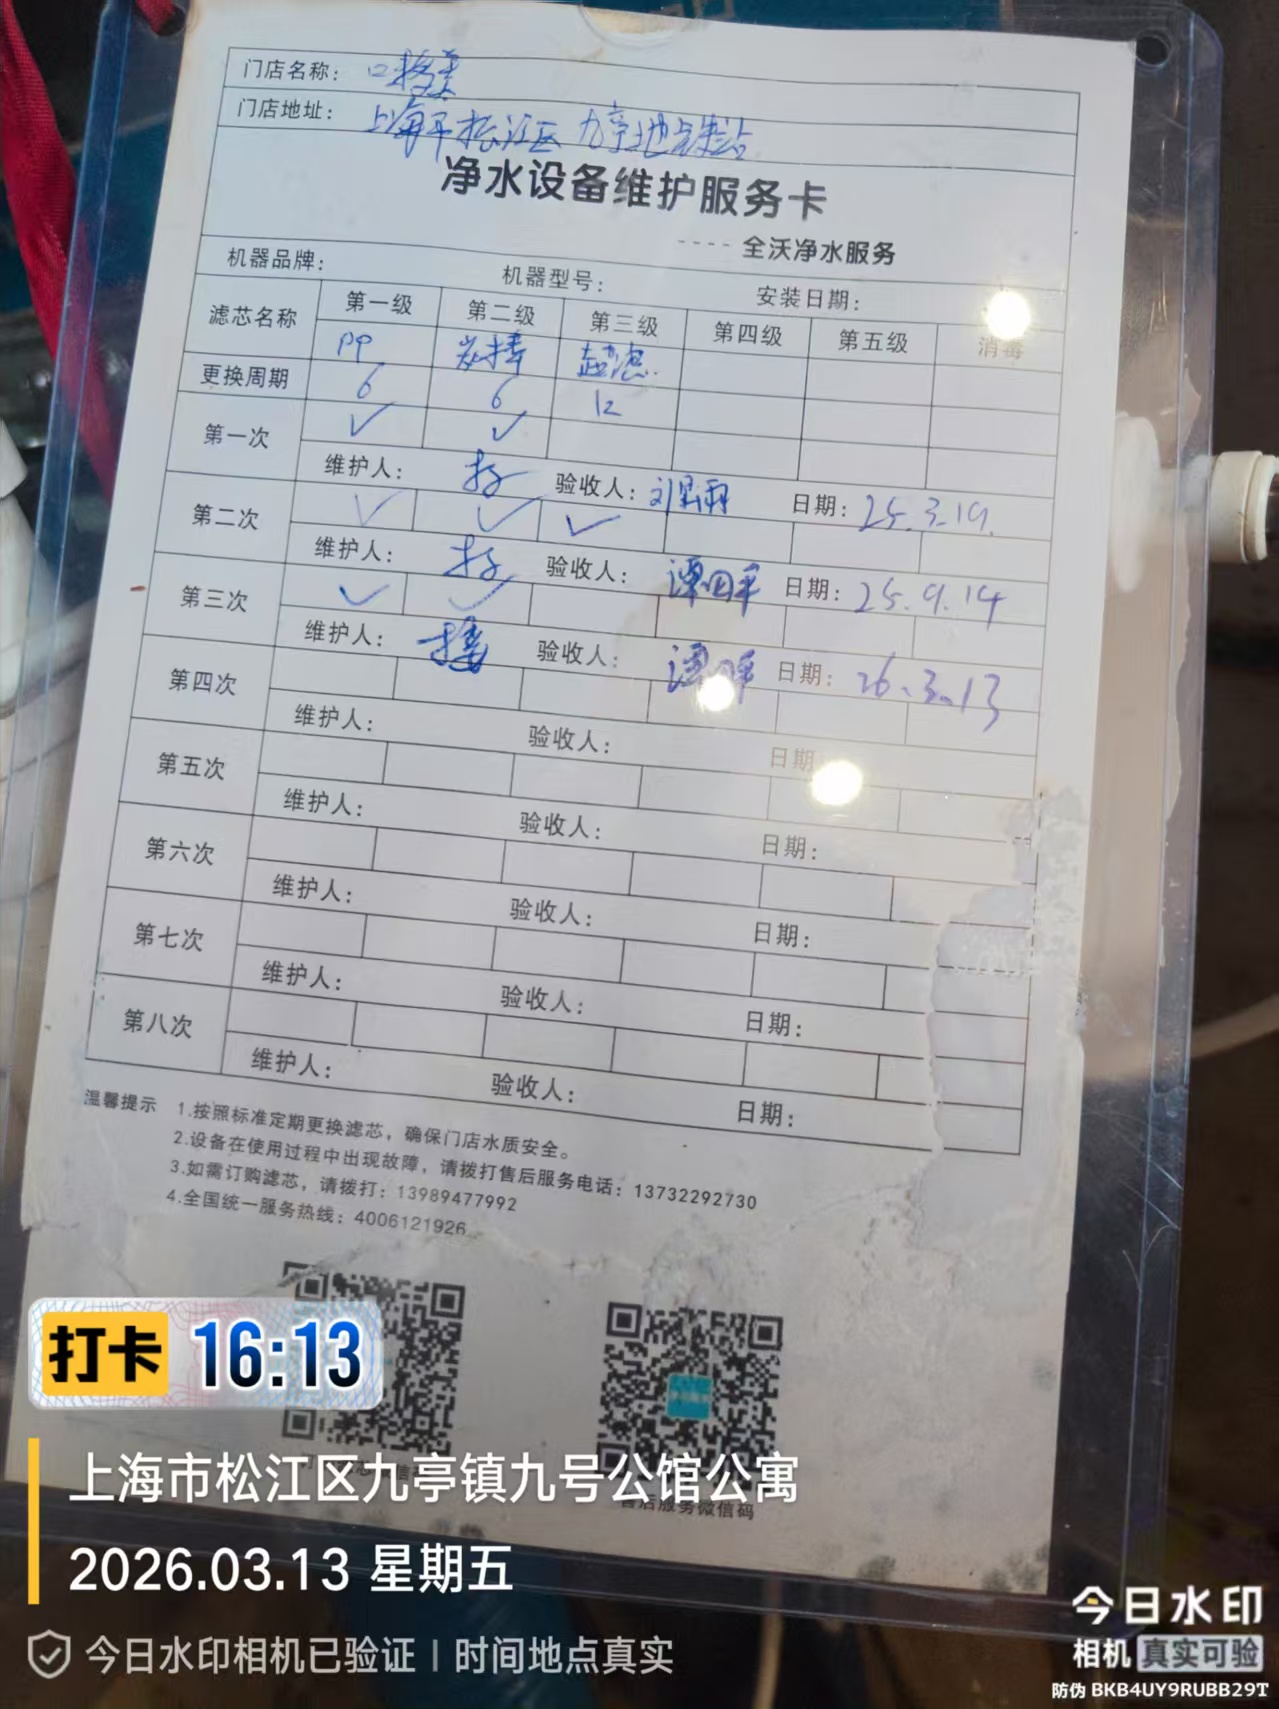 门店名称：
门店地址：上海市松江区九亭地铁站
净水设备维护服务卡
---- 全沃净水服务
机器品牌： 机器型号： 安装日期：
滤芯名称 第一级 第二级 第三级 第四级 第五级 消毒
PP 炭棒 超滤
更换周期 6 6 12
第一次 ✓ ✓
维护人： 验收人： 日期：25.3.19.
第二次 ✓ ✓ ✓
维护人： 验收人： 日期：25.9.14
第三次 ✓ ✓
维护人： 验收人： 日期：26.3.13
第四次
维护人： 验收人： 日期
第五次
维护人： 验收人： 日期：
第六次
维护人： 验收人： 日期：
第七次
维护人： 验收人： 日期：
第八次
维护人： 验收人： 日期：
温馨提示 1.按照标准定期更换滤芯，确保门店水质安全。
2.设备在使用过程中出现故障，请拨打售后服务电话：13732292730
3.如需订购滤芯，请拨打：13989477992
4.全国统一服务热线：4006121926
售后服务微信码
打卡 16:13
上海市松江区九亭镇九号公馆公寓
2026.03.13 星期五
今日水印相机已验证 | 时间地点真实
今日水印
相机 真实可验
防伪 BKB4UY9RUBB29T